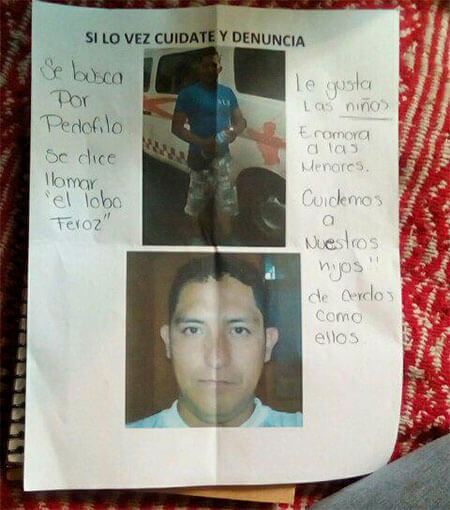 SI LO VEZ CUIDATE Y DENUNCIA
Se busca
Por
Pedofilo
Se dice
llamar
"el lobo
Feroz"
Le gusta
Las niños
Enamora
a las
Menores.
Cuidemos
a
Nuestros
hijos!!
de Cerdos
como
ellos.